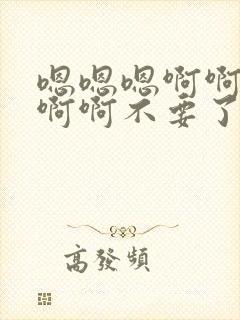 嗯嗯嗯啊啊
啊啊不要了
高發頻